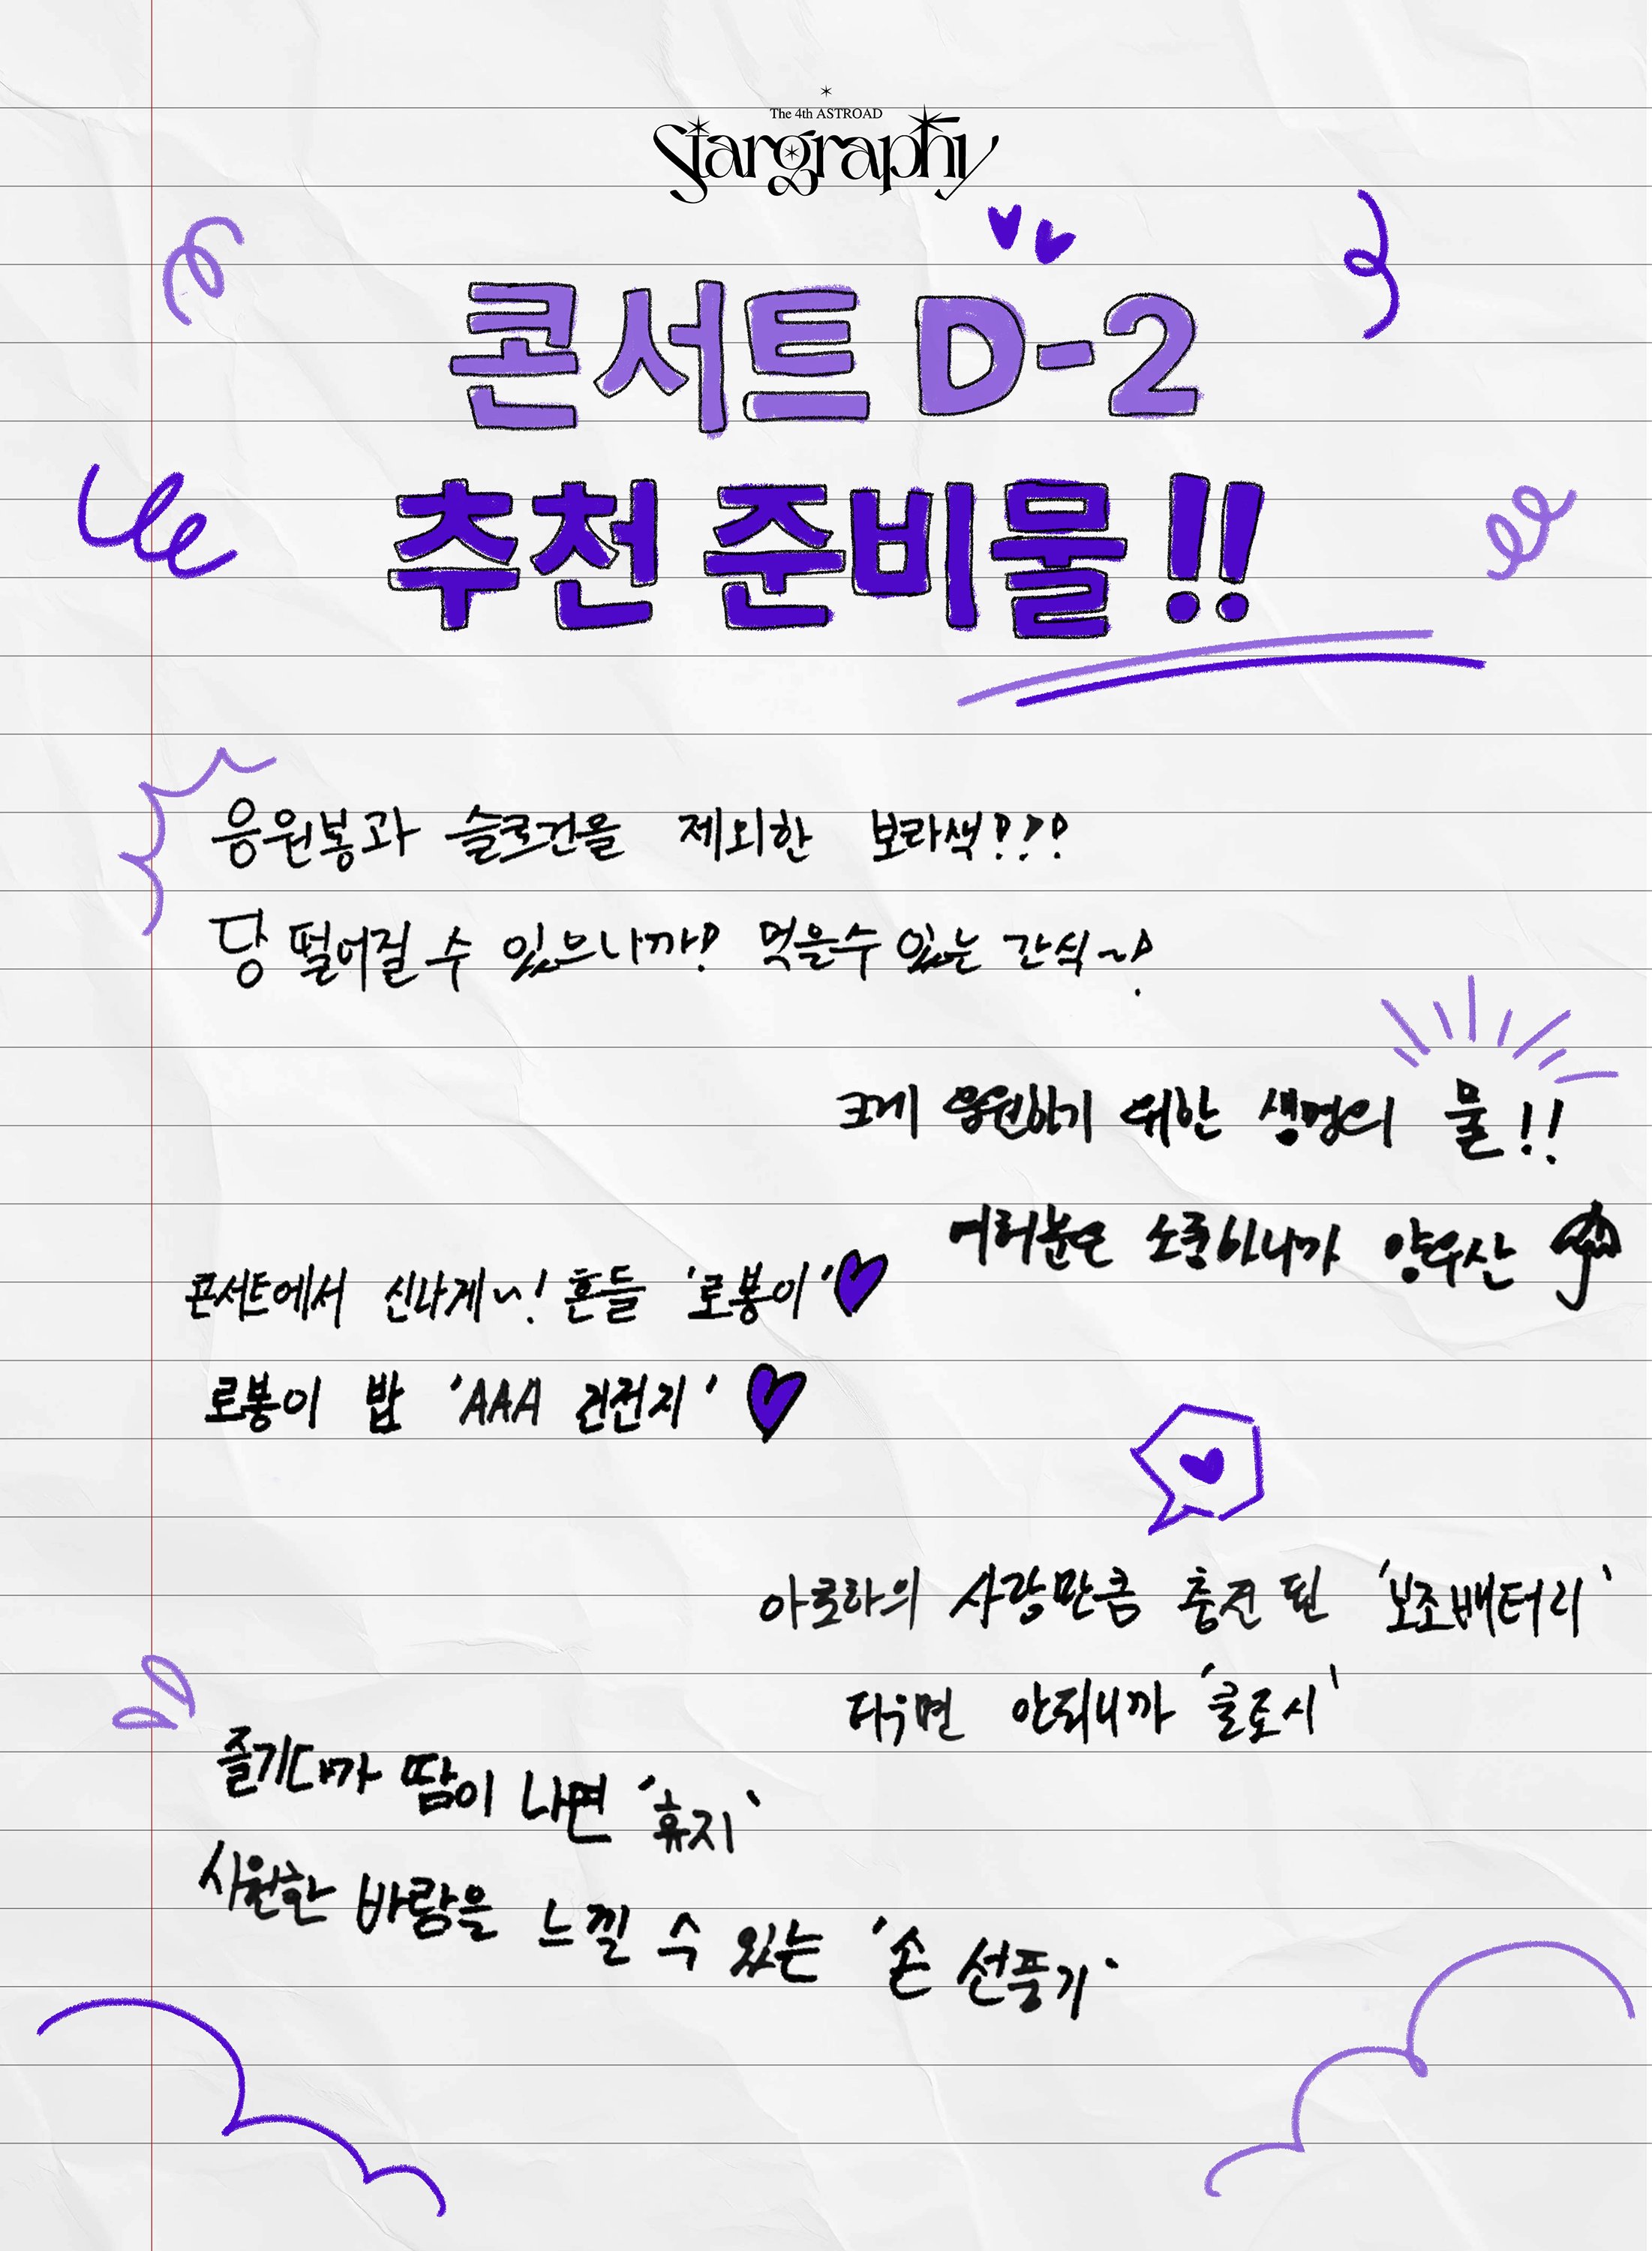 The 4th ASTROAD
Stargraphy
콘서트 D-2
추천 준비물!!
응원봉과 슬로건을 제외한 보라색???
당 떨어질 수 있으니까? 먹을수 있는 간식~?
크게 응원하기 위한 생명의 물!!
여러분은 소중하니까 양우산
콘서트에서 신나게~! 흔들 '로봉이'
로봉이 밥 'AAA 건전지'
아로하의 사랑만큼 충전 된 '보조배터리'
더우면 안되니까 '쿨토시'
즐기다가 땀이 나면 '휴지'
시원한 바람을 느낄 수 있는 '손 선풍기'